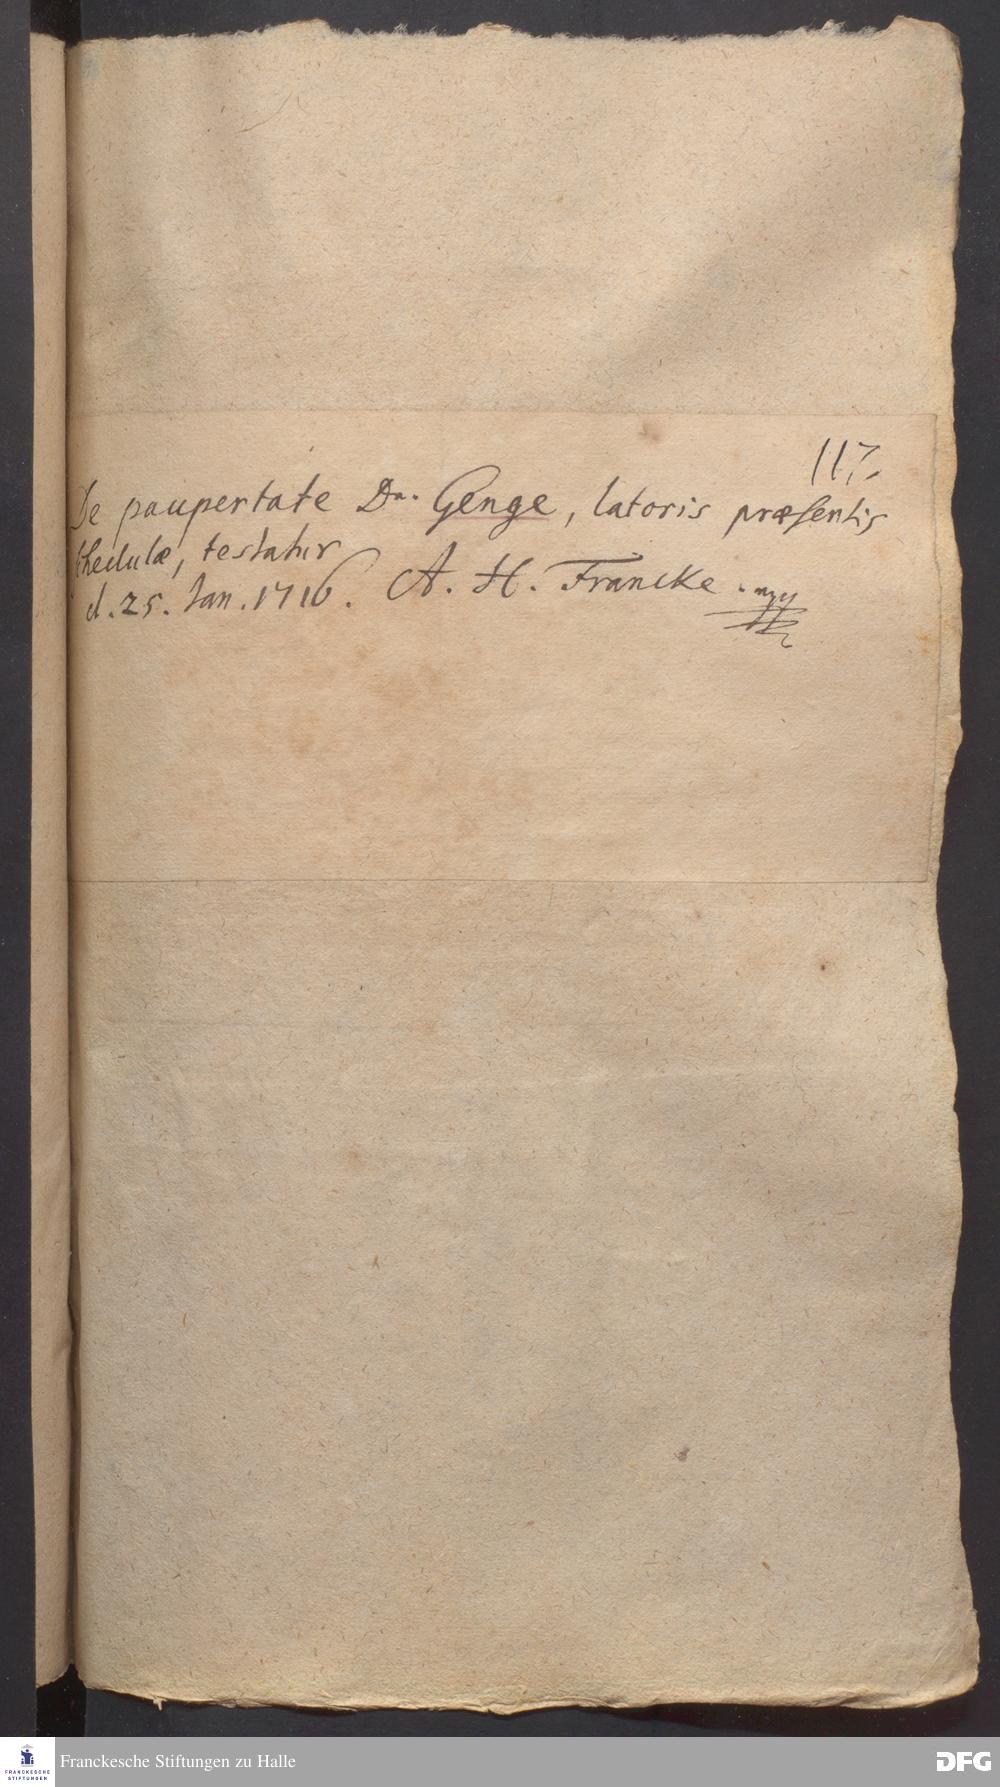 117.
De paupertate Dn. Genge, latoris præsentis
schedulæ, testatur
d. 25. Jan. 1716. A. H. Francke.
Franckesche Stiftungen zu Halle
FRANCKESCHE
STIFTUNGEN
DFG